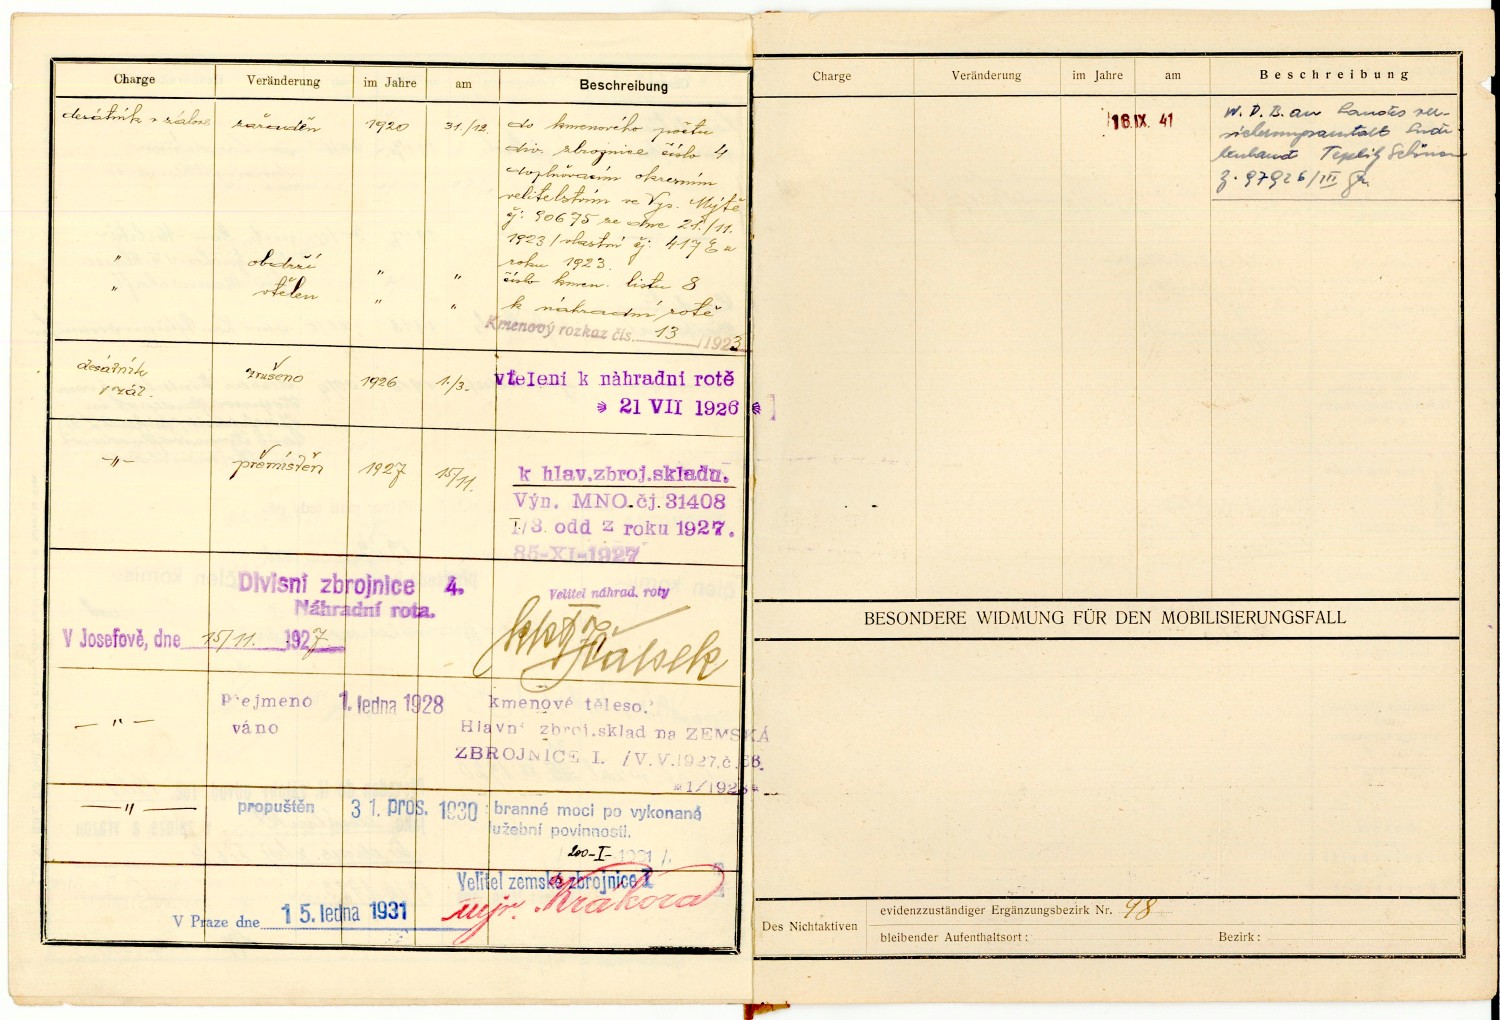 Charge Veränderung im Jahre am Beschreibung
desátník v záloze zařaděn 1920 31./12. do kmenového počtu
div. zbrojnice číslo 4
doplňovacím okresním
velitelstvím ve Vys. Mýtě
čj: 90675 ze dne 21./11.
1923/vlastní čj: 417
roku 1923.
" obdrží " " číslo kmen. listu 8
" vtělen " " k náhradní rotě
Kmenový rozkaz čís. 13 /1923
desátník v zál. zrušeno 1926 1./3. vtelení k náhradní rotě
21 VII 1926
—"— přemístěn 1927 15/11. k hlav.zbroj.skladu.
Výn. MNO.čj.31408
I/3. odd z roku 1927.
85-XI-1927
Divisní zbrojnice 4.
Náhradní rota.
Velitel náhrad. roty
V Josefově, dne 15/11. 1927
—"— přejmeno 1. ledna 1928 kmenové těleso.
váno Hlavní zbroj.sklad na ZEMSKÁ
ZBROJNICE I. /V.V.1927.č.56.
*1/1928*
—"— propuštěn 31. pros. 1930 z branné moci po vykonané
služební povinnosti.
200-I-1931/.
Velitel zemské zbrojnice I
mjr. Krákora
V Praze dne 15. ledna 1931
Charge Veränderung im Jahre am Beschreibung
18. IX. 41 W. D. B. an Landesver-
sicherungsanstalt Sude-
tenland Teplitz Schönau
Z. 97926/III
BESONDERE WIDMUNG FÜR DEN MOBILISIERUNGSFALL
Des Nichtaktiven
evidenzzuständiger Ergänzungsbezirk Nr. 98
bleibender Aufenthaltsort: Bezirk: